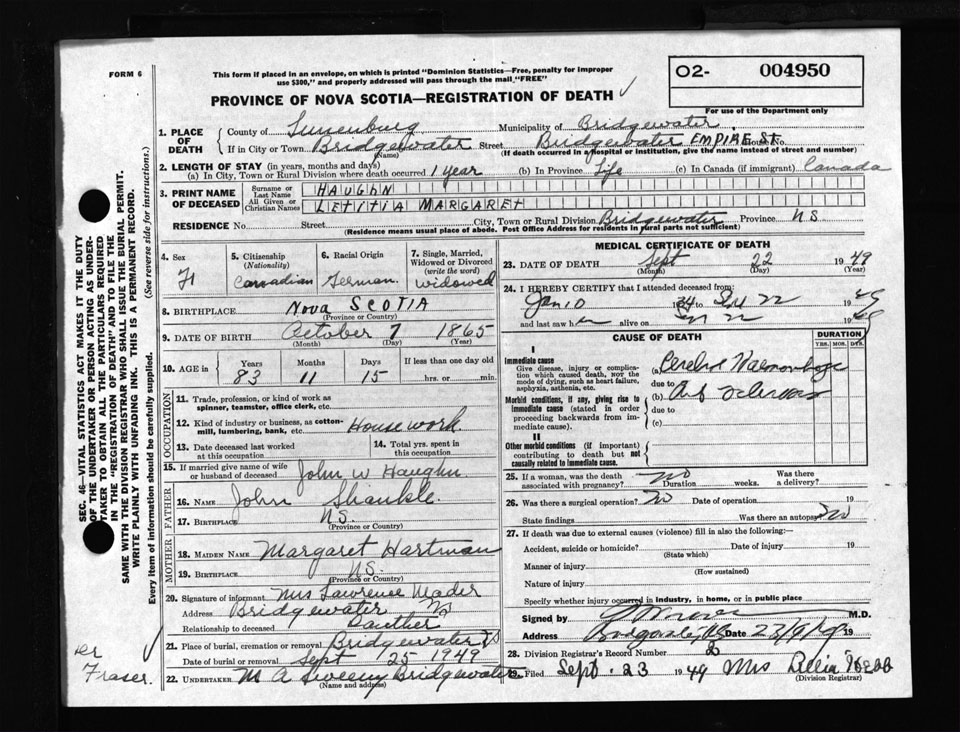 FORM 6
This form if placed in an envelope, on which is printed "Dominion Statistics—Free, penalty for improper
use $300," and properly addressed will pass through the mail "FREE"
O2- 004950
For use of the Department only
PROVINCE OF NOVA SCOTIA—REGISTRATION OF DEATH
1. PLACE OF DEATH
County of Lunenburg Municipality of Bridgewater
If in City or Town Bridgewater Street Bridgewater EMPIRE St. House No.
(Name) (If death occurred in a hospital or institution, give the name instead of street and number)
2. LENGTH OF STAY (in years, months and days)
(a) In City, Town or Rural Division where death occurred 1 year (b) In Province Life (c) In Canada (if immigrant) Canada
3. PRINT NAME OF DECEASED
Surname or Last Name HAUGHN
All Given or Christian Names LETITIA MARGARET
RESIDENCE No. Street City, Town or Rural Division Bridgewater Province N.S.
(Residence means usual place of abode. Post Office Address for residents in rural parts not sufficient)
SEC. 46—VITAL STATISTICS ACT MAKES IT THE DUTY
OF THE UNDERTAKER OR PERSON ACTING AS UNDER-
TAKER TO OBTAIN ALL THE PARTICULARS REQUIRED
IN THE "REGISTRATION OF DEATH" AND TO FILE THE
SAME WITH THE DIVISION REGISTRAR WHO SHALL ISSUE THE BURIAL PERMIT.
WRITE PLAINLY WITH UNFADING INK. THIS IS A PERMANENT RECORD.
Every item of information should be carefully supplied. (See reverse side for instructions.)
4. Sex
5. Citizenship (Nationality) Canadian
6. Racial Origin German
7. Single, Married, Widowed or Divorced (write the word) widowed
8. BIRTHPLACE Nova SCOTIA
(Province or Country)
9. DATE OF BIRTH October 7 1865
(Month) (Day) (Year)
10. AGE in Years Months Days If less than one day old
83 11 15 hrs. or min.
OCCUPATION
11. Trade, profession, or kind of work as
spinner, teamster, office clerk, etc.
12. Kind of industry or business, as cotton-
mill, lumbering, bank, etc. Housework
13. Date deceased last worked at this occupation
14. Total yrs. spent in this occupation
15. If married give name of wife
or husband of deceased John W Haughn
FATHER
16. NAME John Shankle
17. BIRTHPLACE N.S.
(Province or Country)
MOTHER
18. MAIDEN NAME Margaret Hartman
19. BIRTHPLACE N.S.
(Province or Country)
20. Signature of informant Mrs Lawrence Mader
Address Bridgewater NS
Relationship to deceased Dauther
21. Place of burial, cremation or removal Bridgewater NS
Date of burial or removal Sept 25 1949
22. UNDERTAKER M A Sweeny Bridgewater
(Name and address)
Fraser.
MEDICAL CERTIFICATE OF DEATH
23. DATE OF DEATH Sept 22 1949
(Month) (Day) (Year)
24. I HEREBY CERTIFY that I attended deceased from:
Jan 10 19 22 1949
and last saw her alive on 22 1949
CAUSE OF DEATH
DURATION
YRS. MOS. DYS.
I
Immediate cause
Give disease, injury or complica-
tion which caused death, not the
mode of dying, such as heart failure,
asphyxia, asthenia, etc.
(a) Cerebral Haemorrhage
due to
Morbid conditions, if any, giving rise to
immediate cause (stated in order
proceeding backwards from im-
mediate cause).
(b) Art Sclerosis
due to
(c)
II
Other morbid conditions (if important)
contributing to death but not
causally related to immediate cause.
25. If a woman, was the death associated with pregnancy? no Duration weeks. Was there a delivery?
26. Was there a surgical operation? No Date of operation 19
State findings Was there an autopsy? No
27. If death was due to external causes (violence) fill in also the following:
Accident, suicide or homicide? Date of injury 19
(State which)
Manner of injury
(How sustained)
Nature of injury
Specify whether injury occurred in industry, in home, or in public place
Signed by M.D.
Address Bridgewater, NS Date 23/9/49 19
28. Division Registrar's Record Number 2
29. Filed Sept. 23 1949 Mrs Webb
(Division Registrar)